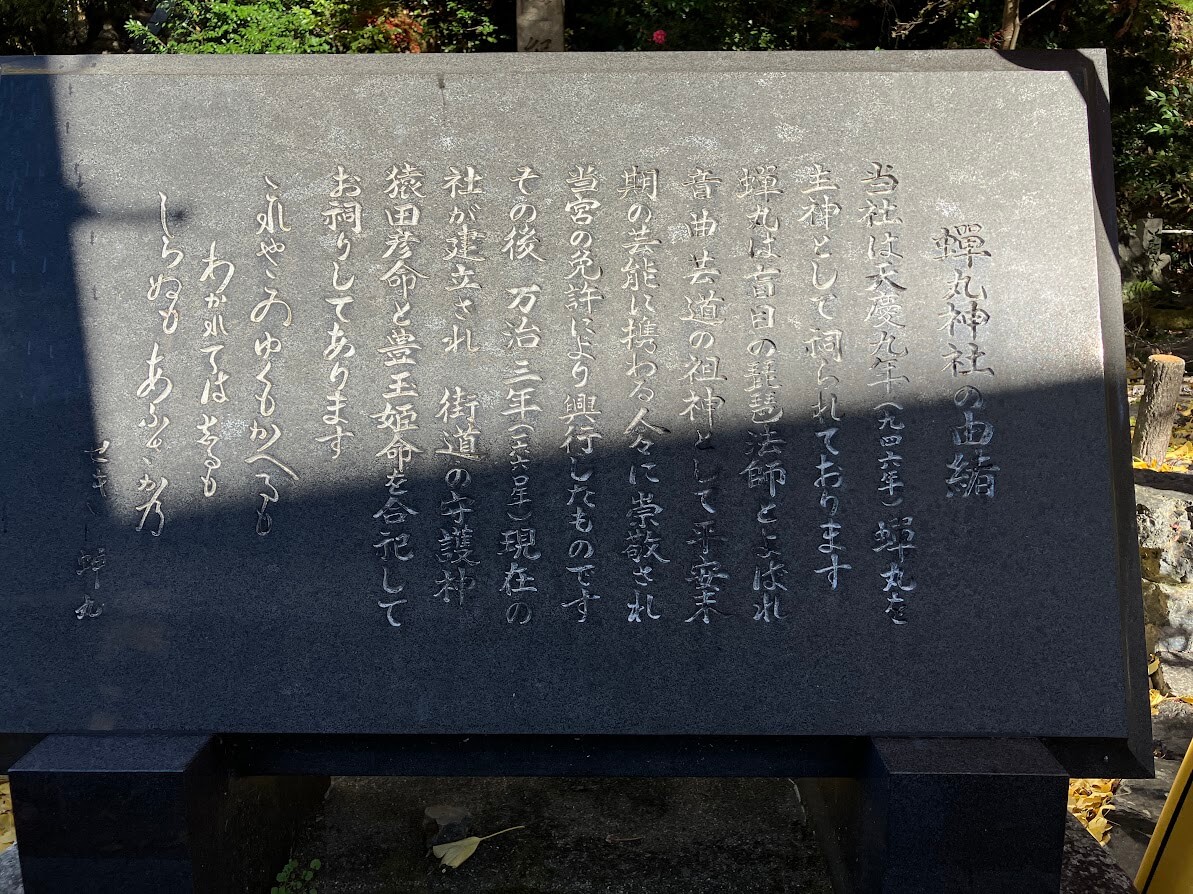 蟬丸神社の由緒
当社は天慶九年(九四六年)蟬丸を
主神として祠られております
蟬丸は盲目の琵琶法師とよばれ
音曲芸道の祖神として平安末
期の芸能に携わる人々に崇敬され
当宮の免許により興行したものです
その後 万治三年(一六六〇年)現在の
社が建立され 街道の守護神
猿田彦命と豊玉姫命を合祀して
お祠りしてあります
これやこのゆくもかへるも
わかれてはしるも
しらぬもあふさかの
せき 蝉丸